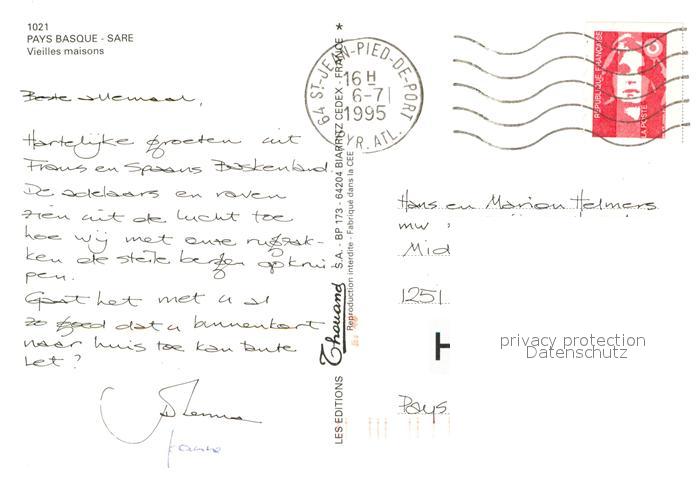 1021
PAYS BASQUE - SARE
Vieilles maisons
Beste allemaal,
Hartelijke groeten uit
Frans en Spaans Baskenland.
De adelaars en raven
zien uit de lucht toe
hoe wij met onze rugzak-
ken de steile bergen opkrui-
pen.
Gaat het met u al
zo goed dat u binnenkort
naar huis toe kan tante
Let?
LES EDITIONS Thouand S.A. - BP 173 - 64204 BIARRITZ CEDEX - FRANCE *
Reproduction interdite - Fabriqué dans la CEE
64 ST-JEAN-PIED-DE-PORT
16 H
6-7
1995
PYR. ATL.
REPUBLIQUE FRANÇAISE
LA POSTE
Hans en Marion Helmers
mw
Mid
1251
privacy protection
Datenschutz
Pays